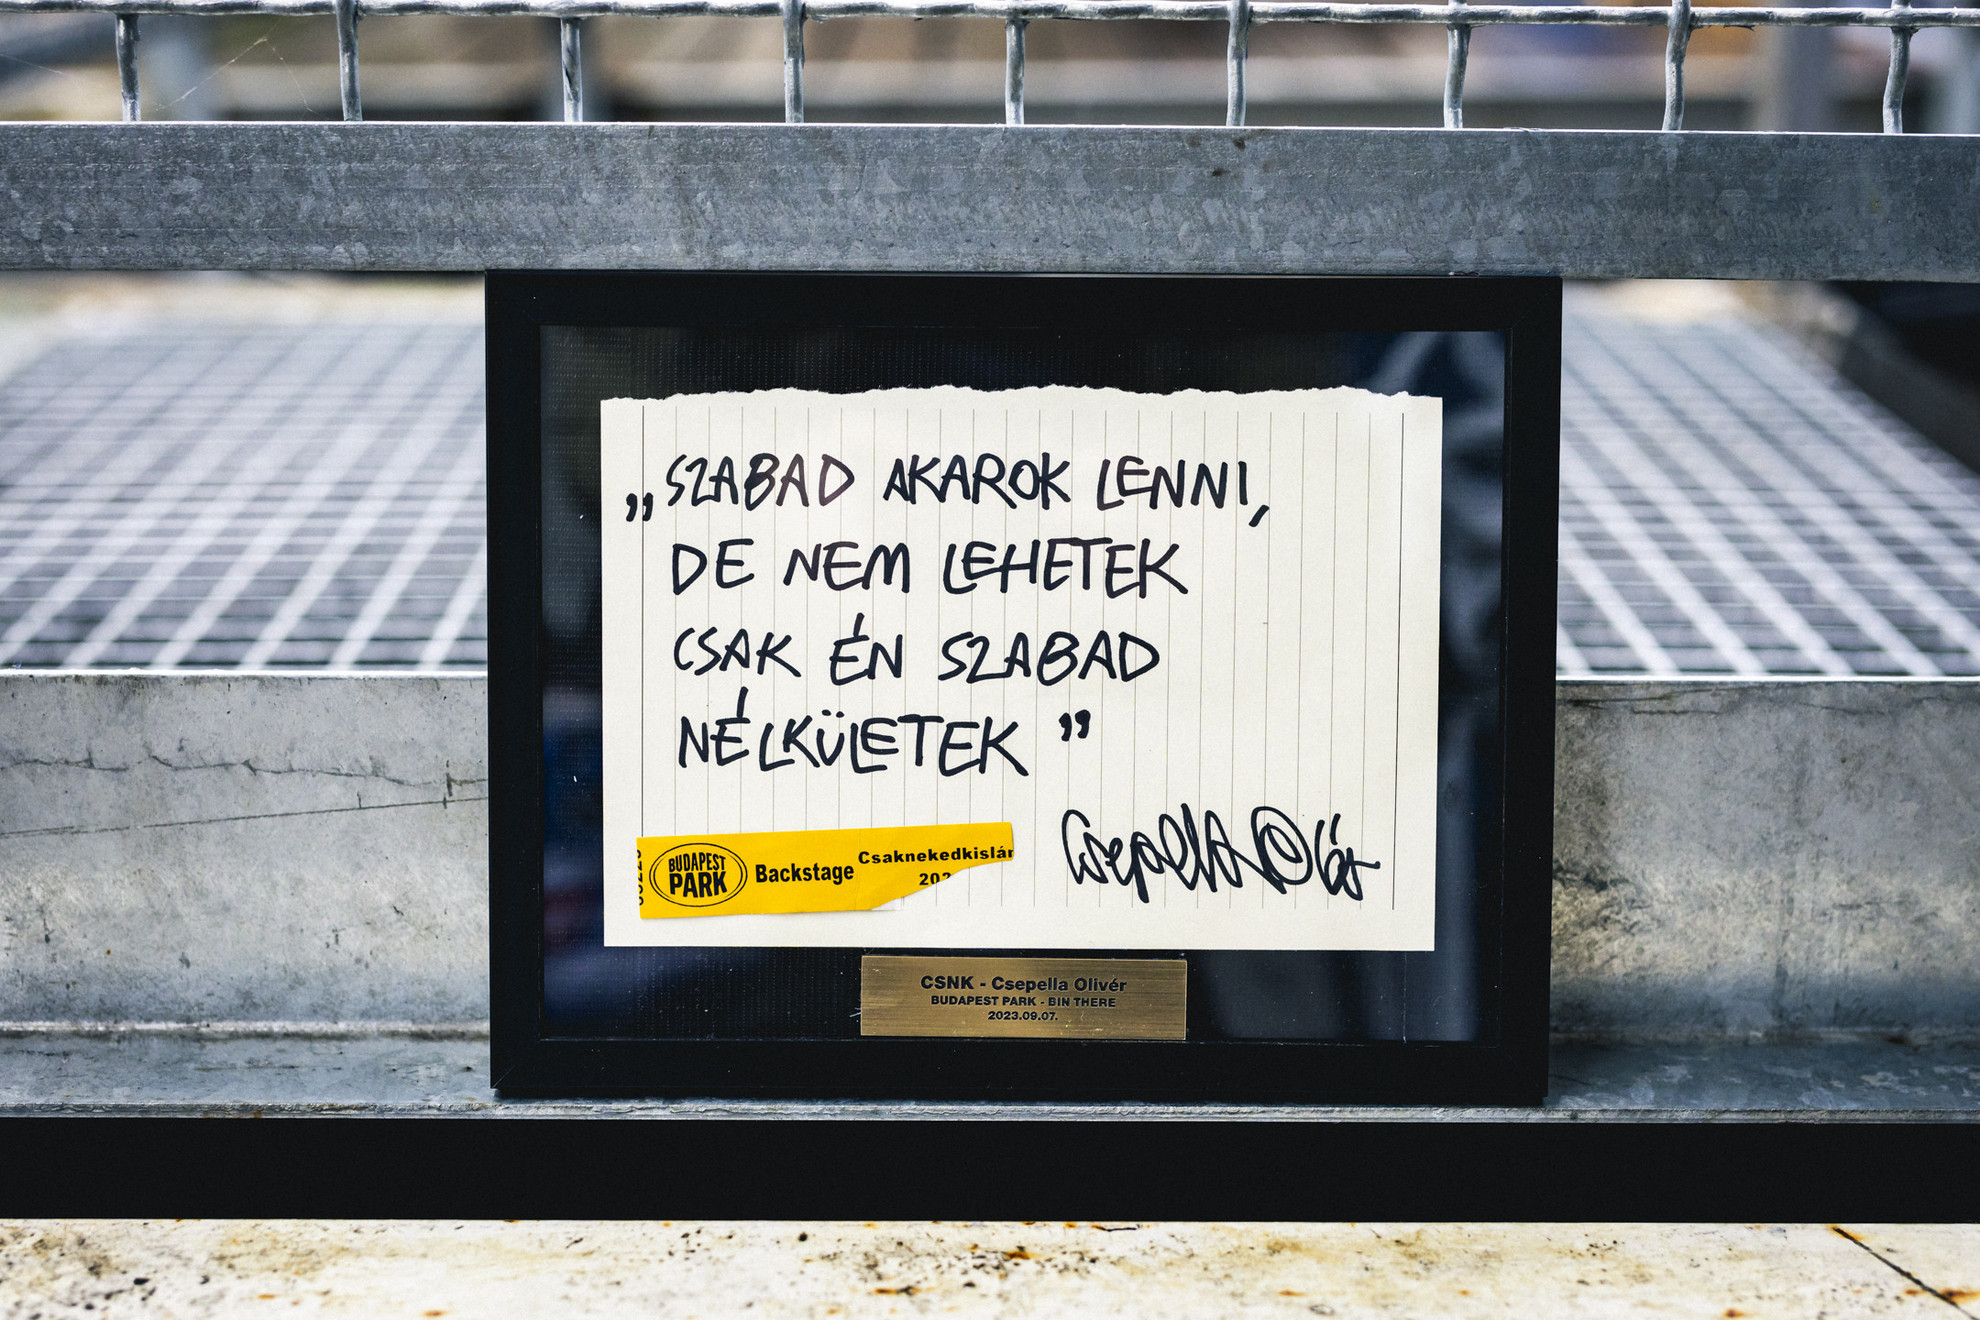 „SZABAD AKAROK LENNI,
DE NEM LEHETEK
CSAK ÉN SZABAD
NÉLKÜLETEK”
BUDAPEST
PARK
Backstage
Csaknekedkislán
202
Csepella Olivér
CSNK - Csepella Olivér
BUDAPEST PARK - BIN THERE
2023.09.07.